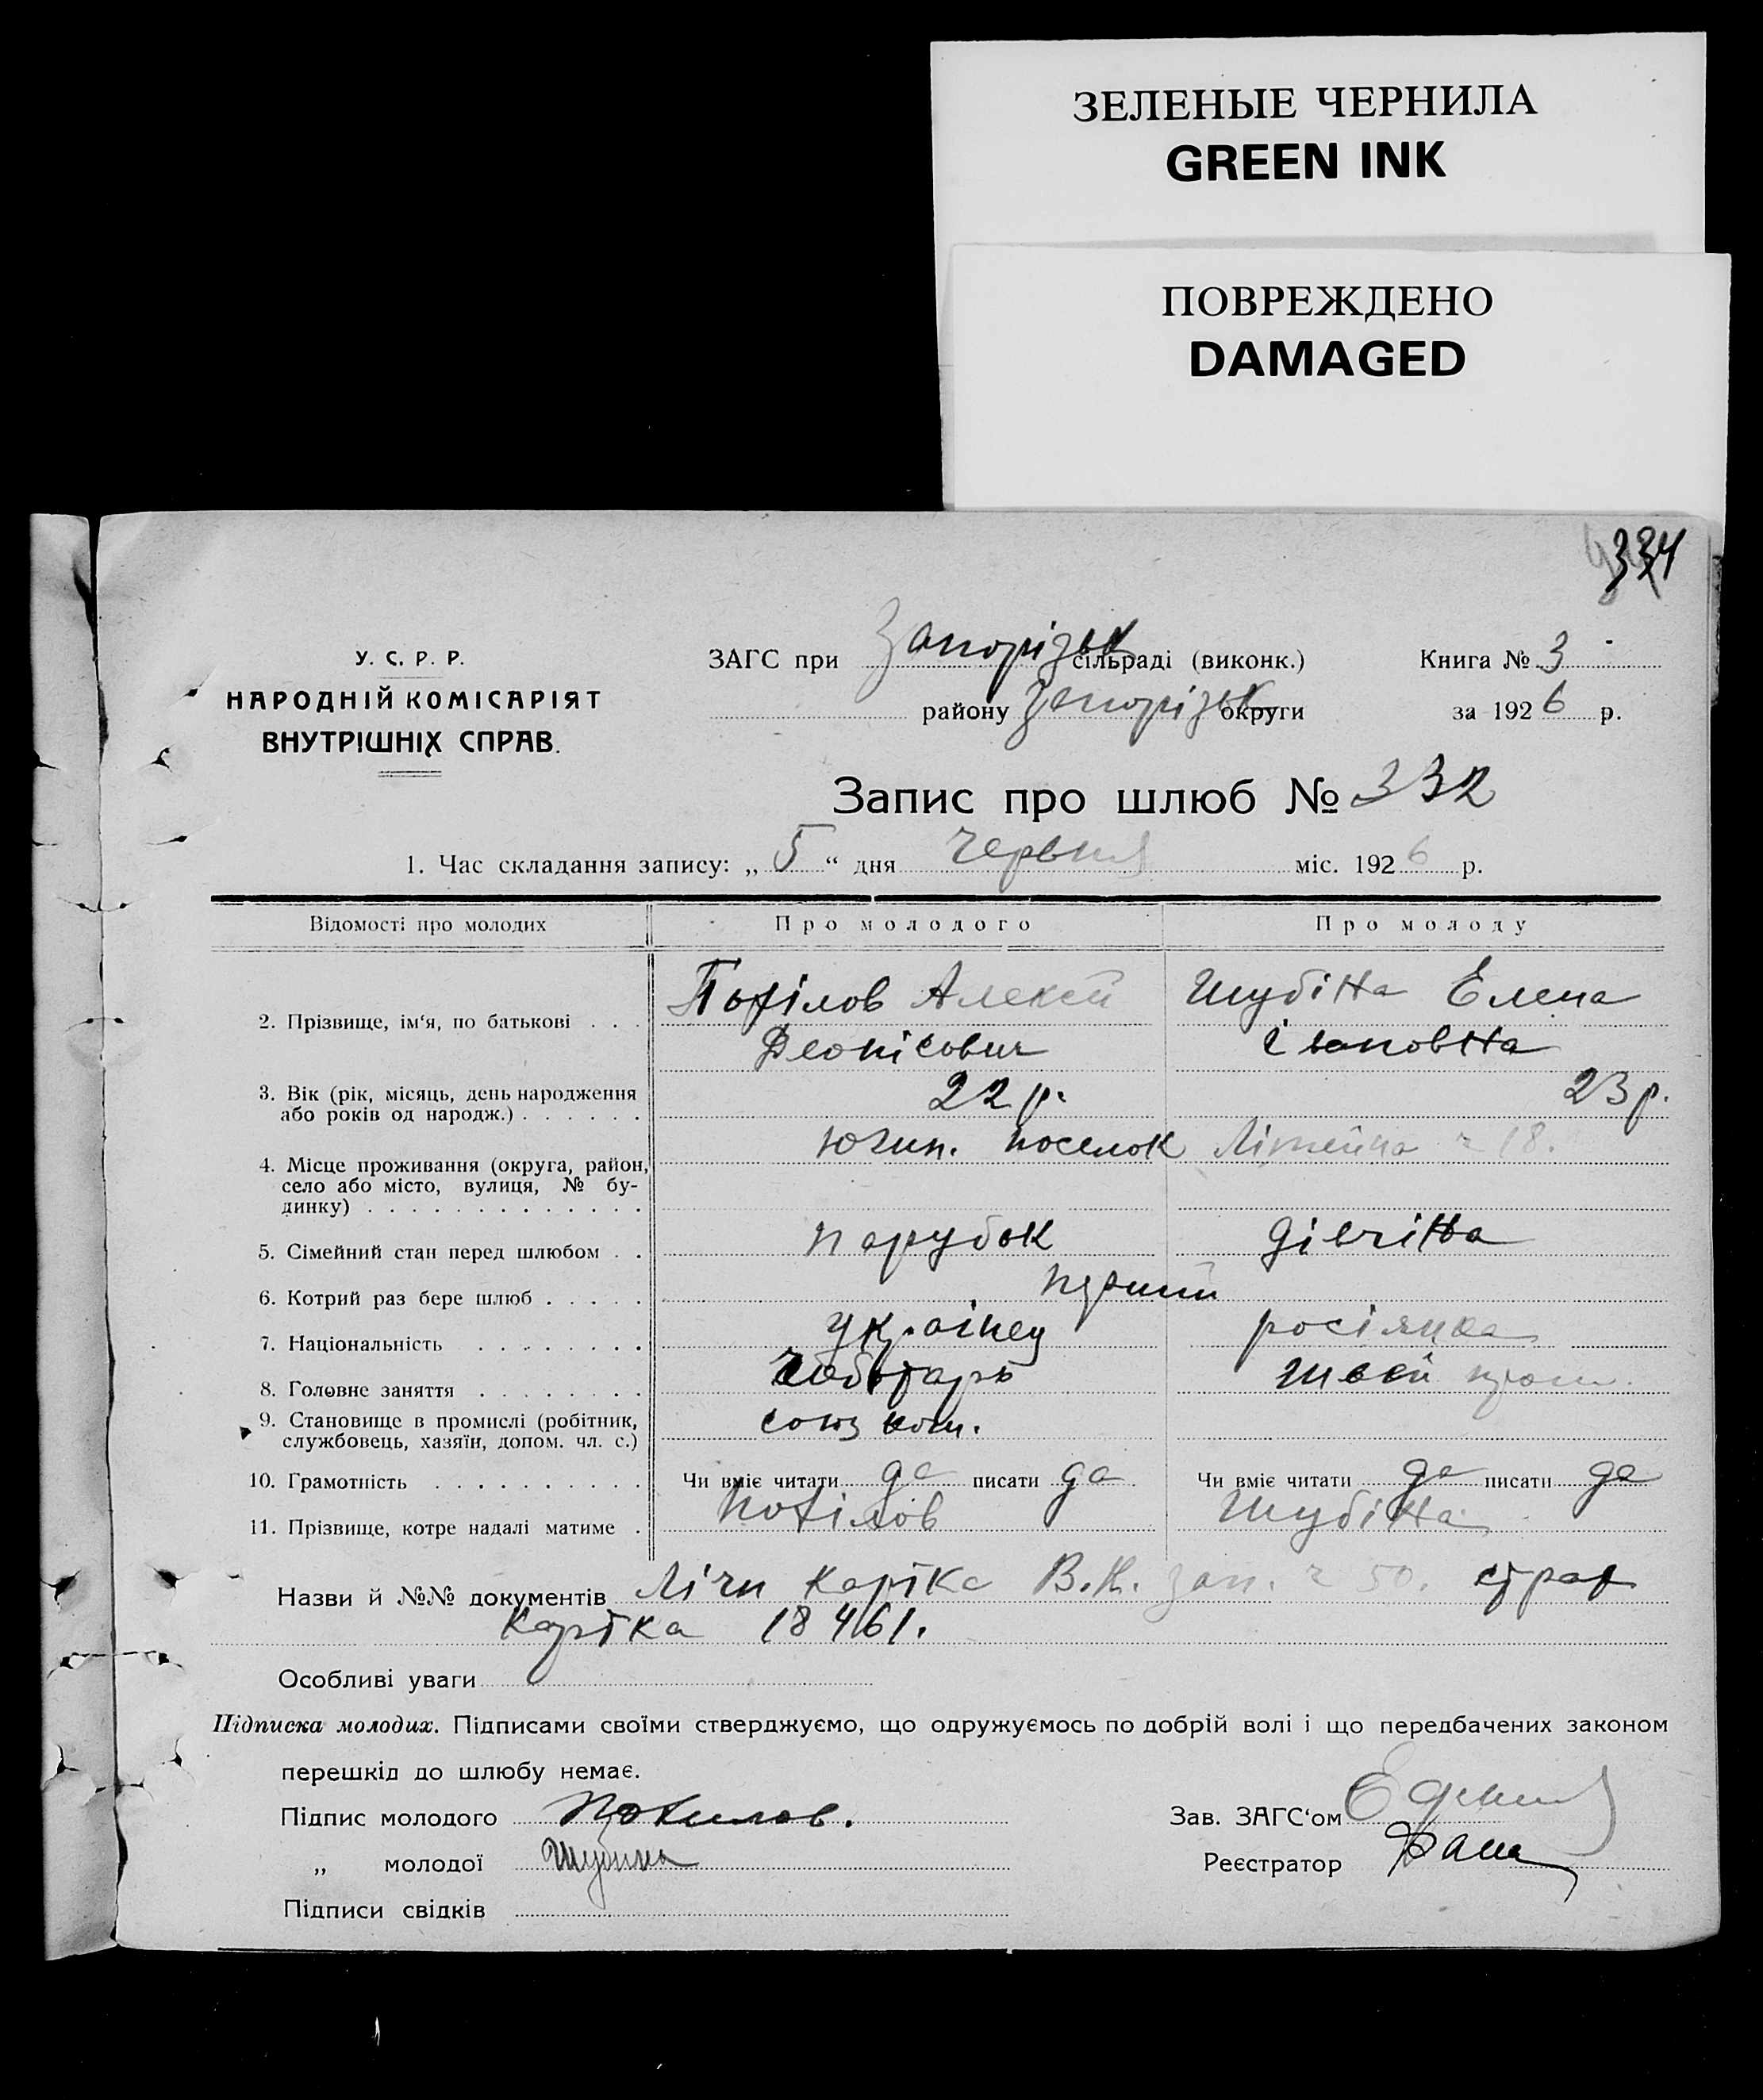 ЗЕЛЕНЫЕ ЧЕРНИЛА
GREEN INK
ПОВРЕЖДЕНО
DAMAGED
334
У. С. Р. Р.
НАРОДНІЙ КОМІСАРІЯТ
ВНУТРІШНІХ СПРАВ.
ЗАГС при Запорізьк сільраді (виконк.)
району Запорізьк округи
Книга № 3
за 1926 р.
Запис про шлюб № 332
1. Час складання запису: „5“ дня Червня міс. 1926 р.
Відомості про молодих Про молодого Про молоду
2. Прізвище, ім'я, по батькові . . . Потілов Алексей Шубіна Елена
Деонісович Івановна
3. Вік (рік, місяць, день народження або років од народж.) . . . . . . 22 р. 23 р.
4. Місце проживання (округа, район, село або місто, вулиця, № будинку) . . . . . . . . . . . . . Южн. поселок Літейна ч 18.
5. Сімейний стан перед шлюбом . . парубок дівчіна
6. Котрий раз бере шлюб . . . . . перший
7. Національність . . . . . . . . українец росіянка
8. Головне заняття . . . . . . . . Чоботарь швей пром.
9. Становище в промислі (робітник, службовець, хазяїн, допом. чл. с.) союз кож.
10. Грамотність . . . . . . . . . . Чи вміє читати да писати да Чи вміє читати да писати да
11. Прізвище, котре надалі матиме . Потілов Шубіна
Назви й №№ документів Лічн картка В.К. зап. ч 50. страх
картка 18461.
Особливі уваги
Підписка молодих. Підписами своїми стверджуємо, що одружуємось по добрій волі і що передбачених законом
перешкід до шлюбу немає.
Підпис молодого Потилов. Зав. ЗАГС'ом
„ молодої Шубина Реєстратор
Підписи свідків